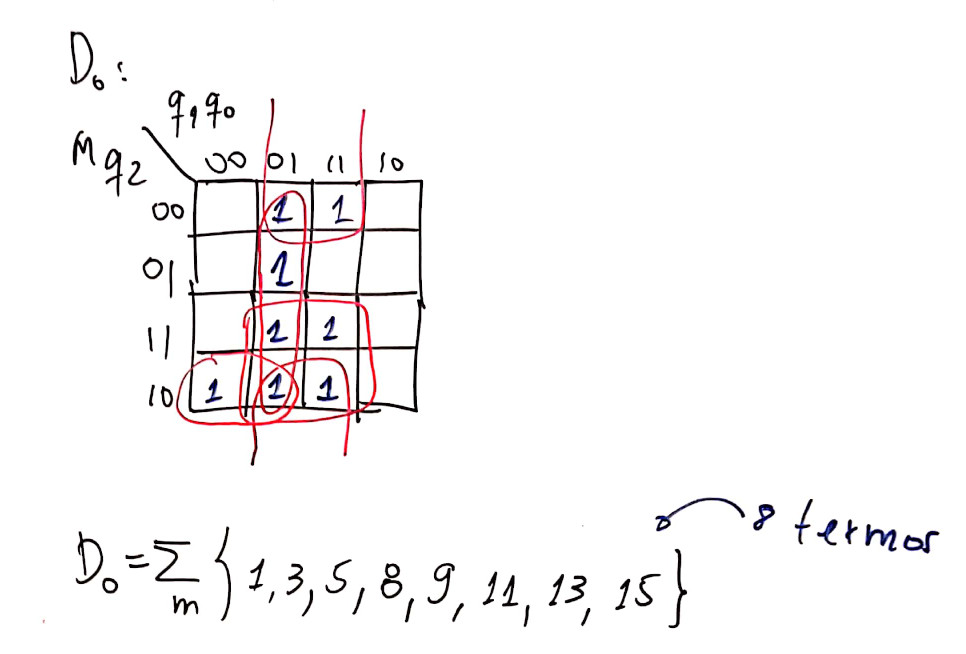 D₀:
q₁q₀
Mq₂ 00 01 11 10
00 1 1
01 1
11 1 1
10 1 1 1
8 termos
D₀ = Σm {1, 3, 5, 8, 9, 11, 13, 15}